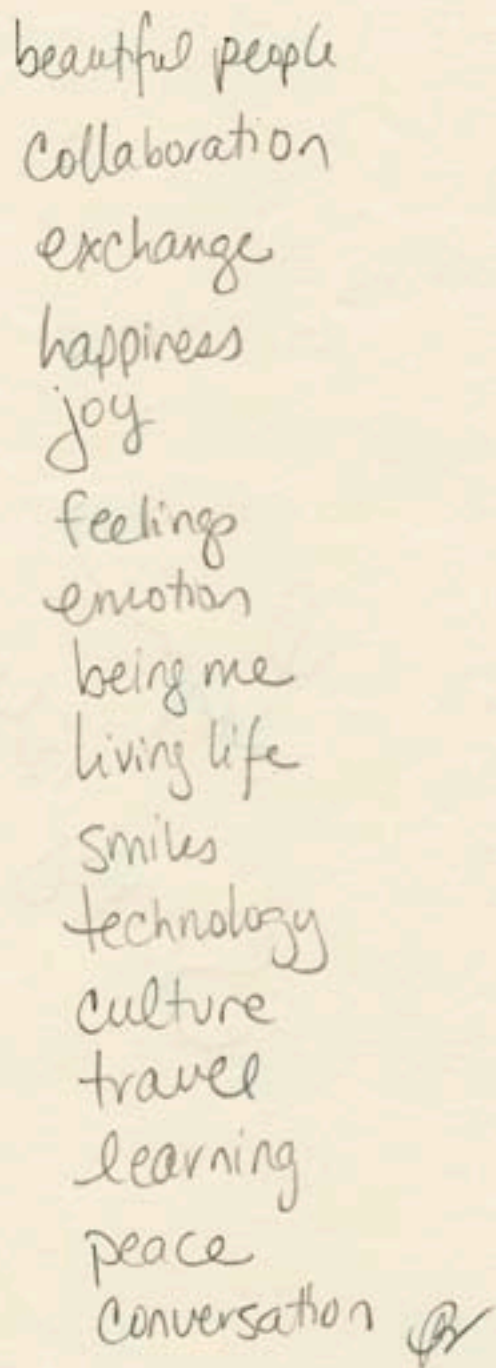 beautiful people
collaboration
exchange
happiness
joy
feelings
emotion
being me
living life
smiles
technology
culture
travel
learning
peace
conversation